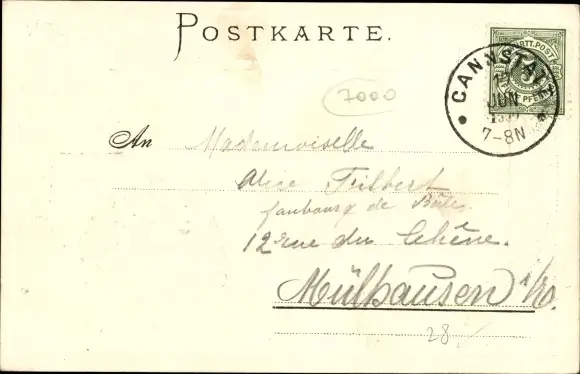 POSTKARTE.
7000
WÜRTT. POST
5
FÜNF PFENNIG
CANNSTATT
JUN
7-8N
An Mademoiselle
Alice Filbert
faubourg de Bâle
12 rue du Chêne.
Mülhausen
28